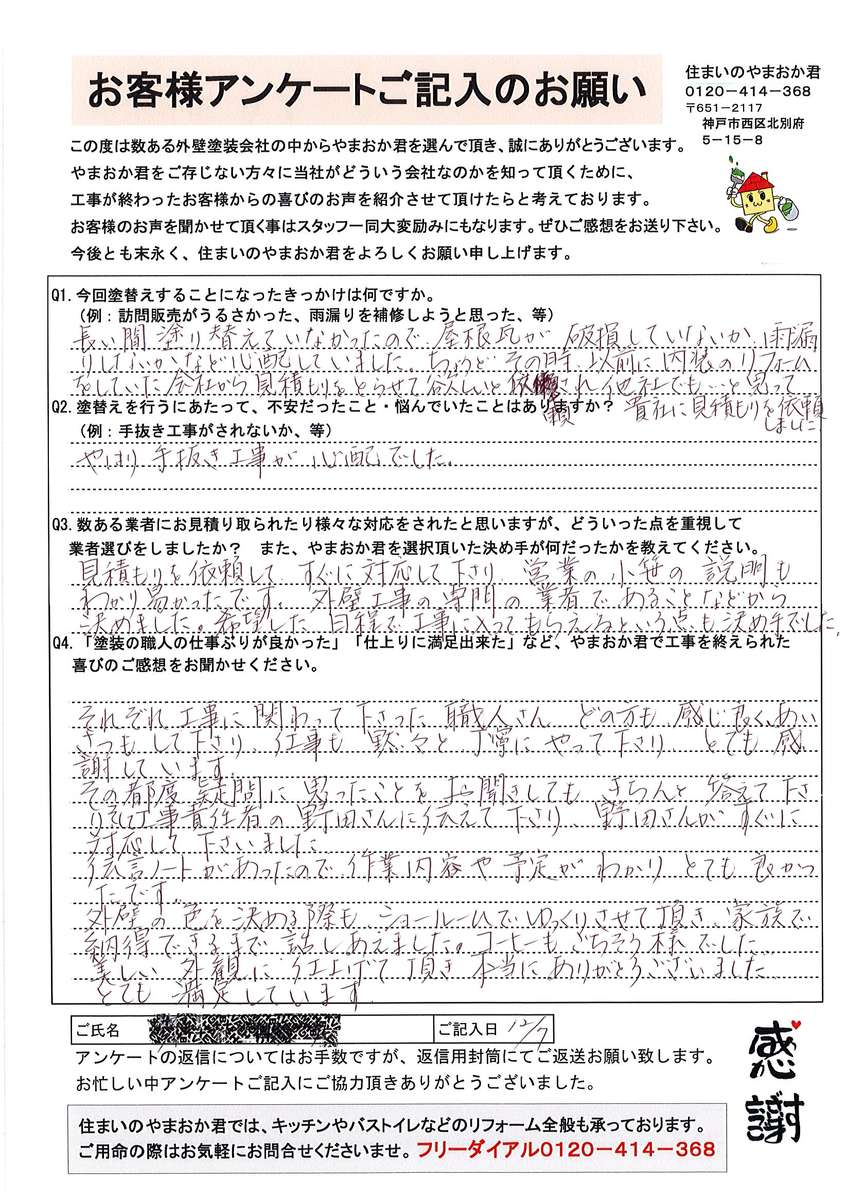 お客様アンケートご記入のお願い
住まいのやまおか君
0120－414－368
〒651－2117
神戸市西区北別府
5－15－8
この度は数ある外壁塗装会社の中からやまおか君を選んで頂き、誠にありがとうございます。
やまおか君をご存じない方々に当社がどういう会社なのかを知って頂くために、
工事が終わったお客様からの喜びのお声を紹介させて頂けたらと考えております。
お客様のお声を聞かせて頂く事はスタッフ一同大変励みにもなります。ぜひご感想をお送り下さい。
今後とも末永く、住まいのやまおか君をよろしくお願い申し上げます。
Q1. 今回塗替えすることになったきっかけは何ですか。
（例：訪問販売がうるさかった、雨漏りを補修しようと思った、等）
長い間塗り替えていなかったので 屋根瓦が 破損していないか 雨漏
りしないかなど心配していました。ちょうどその時、以前に内装のリフォーム
をしていた会社から見積もりをとらせて欲しいと依頼され 他社でも…と思って
貴社に見積もりを依頼
しました
Q2. 塗替えを行うにあたって、不安だったこと・悩んでいたことはありますか？
（例：手抜き工事がされないか、等）
やはり 手抜き工事が 心配でした。
Q3. 数ある業者にお見積り取られたり様々な対応をされたと思いますが、どういった点を重視して
業者選びをしましたか？ また、やまおか君を選択頂いた決め手が何だったかを教えてください。
見積もりを依頼して すぐに対応して下さり 営業の小笹の説明も
わかり易かったです。外壁工事の専門の業者であることなどから
決めました。希望した 日程で工事に入ってもらえるという点も決め手でした。
Q4. 「塗装の職人の仕事ぶりが良かった」「仕上りに満足出来た」など、やまおか君で工事を終えられた
喜びのご感想をお聞かせください。
それぞれ工事に関わって下さった 職人さん どの方も 感じ良く、あい
さつもして下さり、仕事も 黙々と丁寧にやって下さり とても感
謝しています。
その都度疑問に思ったことをお聞きしても きちんと答えて下さ
り、工事責任者の野田さんに伝えて下さり、野田さんがすぐに
対応して下さいました
伝言ノートがあったので 作業内容や予定がわかり とても良かっ
たです。
外壁の色を決める際も、ショールームでゆっくりさせて頂き、家族で
納得できるまで 話しあえました。コーヒーもごちそう様でした
美しい 外観に仕上げて頂き 本当にありがとうございました
とても 満足しています。
ご氏名
ご記入日 12/7
アンケートの返信についてはお手数ですが、返信用封筒にてご返送お願い致します。
お忙しい中アンケートご記入にご協力頂きありがとうございました。
感謝
住まいのやまおか君では、キッチンやバストイレなどのリフォーム全般も承っております。
ご用命の際はお気軽にお問合せくださいませ。フリーダイアル0120－414－368